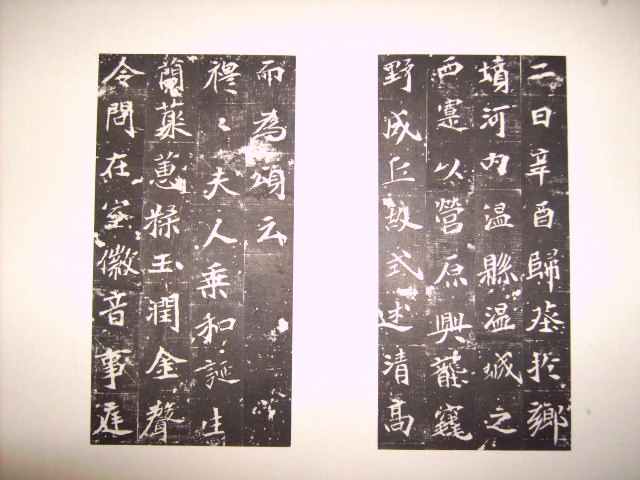 二日辛酉歸座於鄉
墳河內温縣温城之
西寔以營原興蕪窆
野成丘故式述清高
而為頌云
禮〻夫人乗和誕生
蘭蕤蕙糅玉潤金聲
令問在室徽音事庭